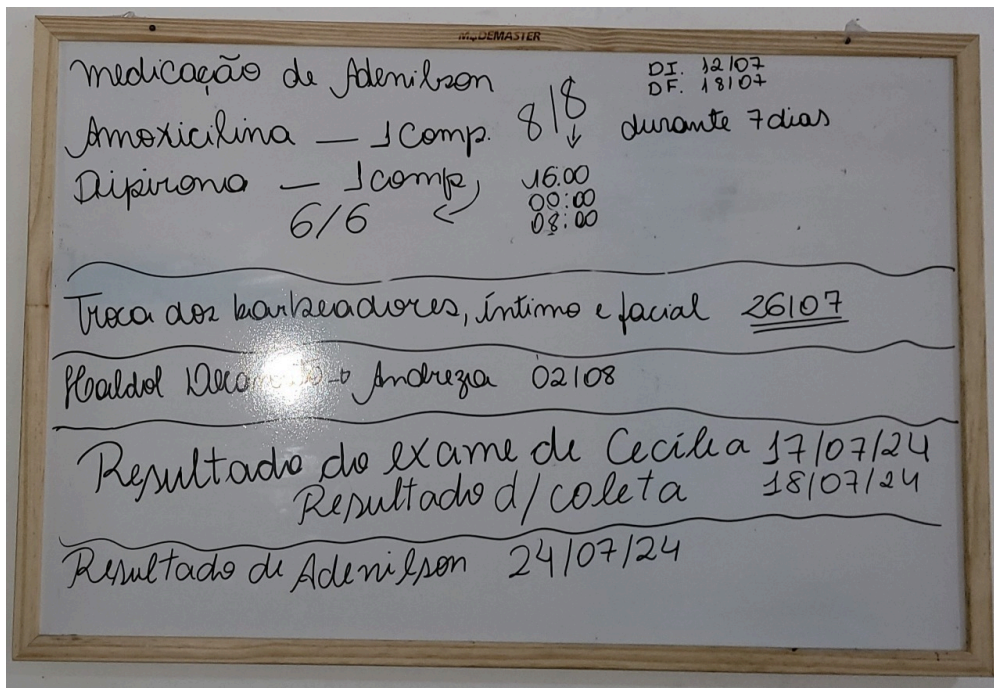 MADEMASTER
medicação de Adenilson
DI. 12/07
DF. 18/07
Amoxicilina — 1 Comp. 8/8 durante 7 dias
Dipirona — 1 comp, 6/6
16:00
00:00
08:00
Troca dos barbeadores, íntimo e facial 26/07
Haldol Andrezia 02/08
Resultado do exame de Cecília 17/07/24
Resultado d/ coleta 18/07/24
Resultado de Adenilson 24/07/24